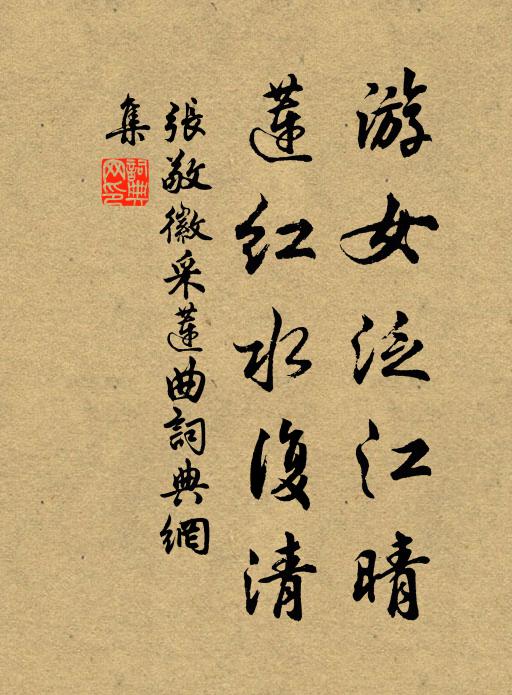 游女泛江晴
蓮紅水復清
張敬徽采蓮曲詞典網
集
詞典
网印